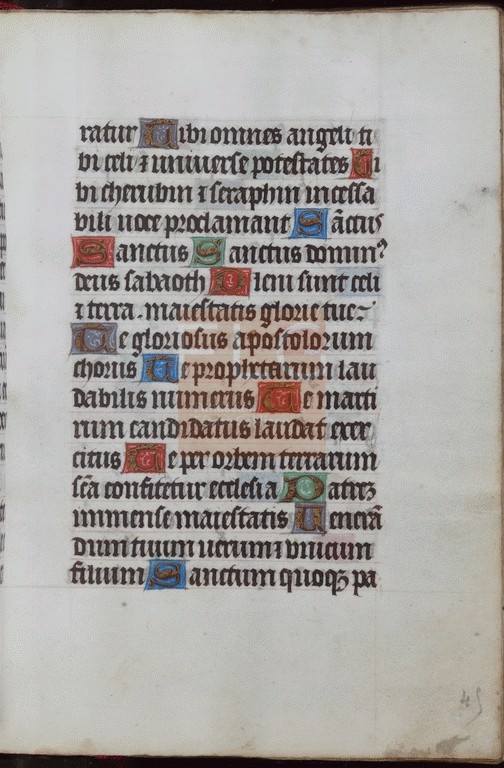 ratur Tibi omnes angeli ti
bi celi ⁊ universe potestates Ti
bi cherubin ⁊ seraphin incessa
bili uoce proclamant Sāctus
Sanctus Sanctus dominꝰ
deus sabaoth Pleni sunt celi
⁊ terra maiestatis glorie tue
Te gloriosus apostolorum
chorus Te prophetarum lau
dabilis numerus Te marti
rum candidatus laudat exer
citus Te per orbem terrarum
sc̄a confitetur ecclesia Patreꝫ
immense maiestatis Uenerā
dum tuum uerum ⁊ vnicum
filium Sanctum quoqꝫ pa
45